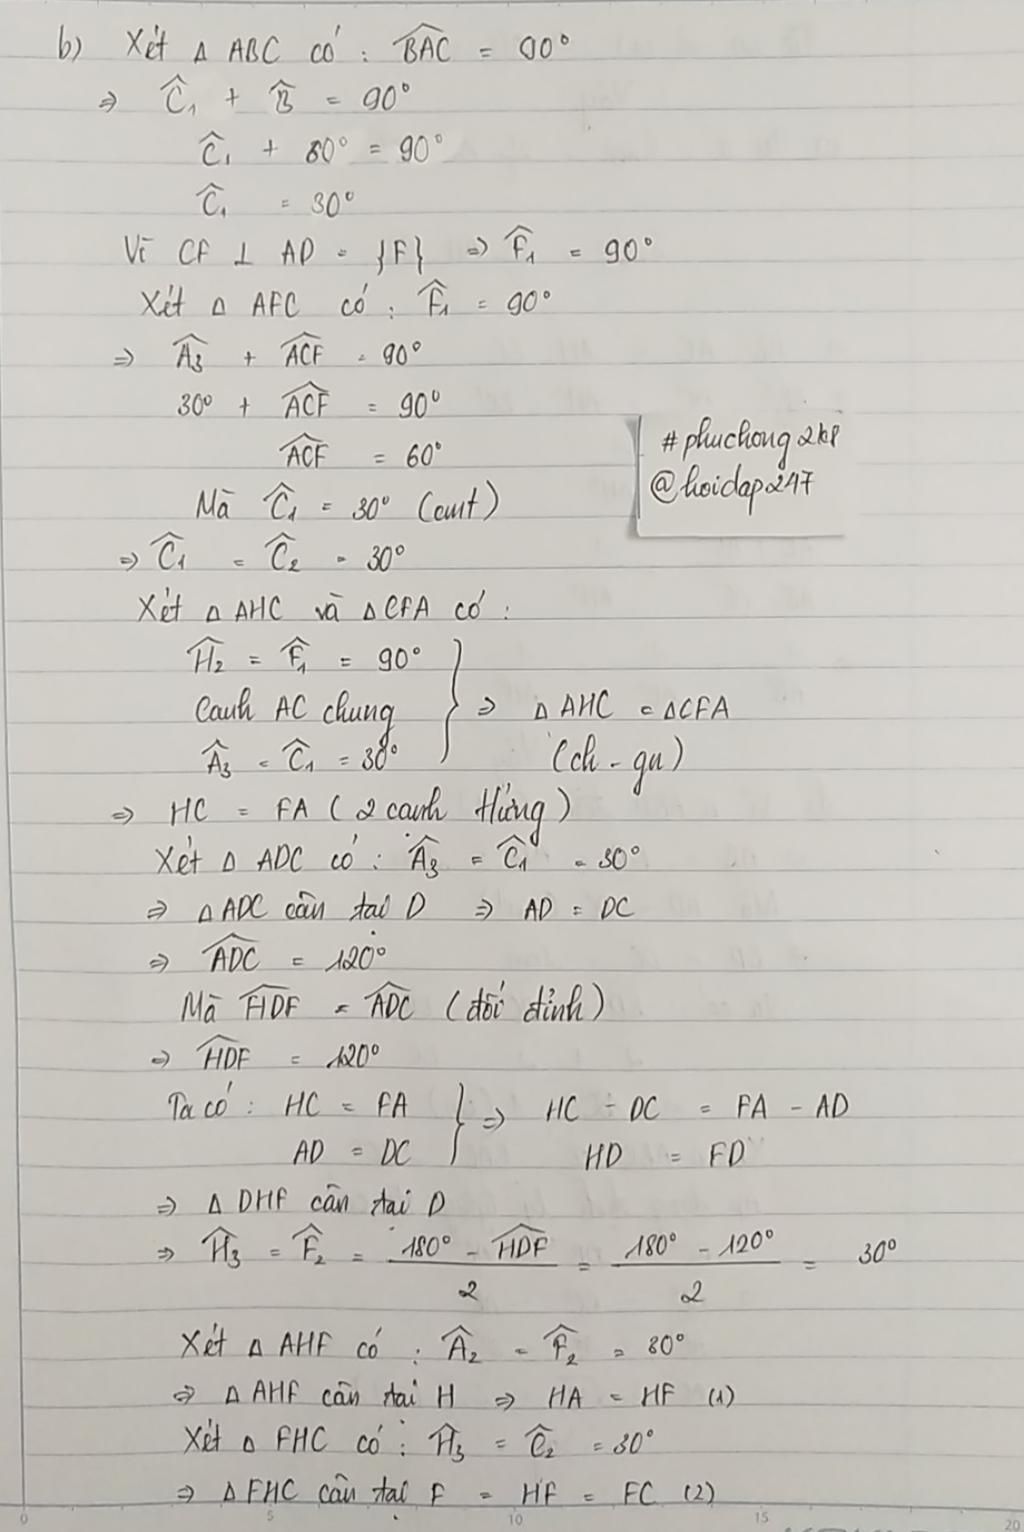 b) Xét Δ ABC có : $\widehat{BAC}$ = 90°
⇒ $\widehat{C}_1$ + $\widehat{B}$ = 90°
$\widehat{C}_1$ + 60° = 90°
$\widehat{C}_1$ = 30°
Vì CF ⊥ AD = {F} ⇒ $\widehat{F}_1$ = 90°
Xét Δ AFC có : $\widehat{F}_1$ = 90°
⇒ $\widehat{A_3}$ + $\widehat{ACF}$ = 90°
30° + $\widehat{ACF}$ = 90°
$\widehat{ACF}$ = 60°
#phuchong2k8
@hoidap247
Mà $\widehat{C}_1$ = 30° (cmt)
⇒ $\widehat{C_1}$ = $\widehat{C}_2$ = 30°
Xét Δ AHC và Δ CFA có :
$\widehat{H_2}$ = $\widehat{F}_1$ = 90°
Cạnh AC chung } ⇒ Δ AHC = Δ CFA
$\widehat{A}_3$ = $\widehat{C}_1$ = 30° (ch - gn)
⇒ HC = FA ( 2 cạnh tứng )
Xét Δ ADC có : $\widehat{A_3}$ = $\widehat{C_1}$ = 30°
⇒ Δ ADC cân tại D ⇒ AD = DC
⇒ $\widehat{ADC}$ = 120°
Mà $\widehat{HDF}$ = $\widehat{ADC}$ (đối đỉnh)
⇒ $\widehat{HDF}$ = 120°
Ta có : HC = FA } ⇒ HC - DC = FA - AD
AD = DC HD = FD
⇒ Δ DHF cân tại D
⇒ $\widehat{H_3}$ = $\widehat{F}_2$ = $\frac{180° - \widehat{HDF}}{2}$ = $\frac{180° - 120°}{2}$ = 30°
Xét Δ AHF có : $\widehat{A}_2$ = $\widehat{F}_2$ = 30°
⇒ Δ AHF cân tại H ⇒ HA = HF (1)
Xét Δ FHC có : $\widehat{H}_3$ = $\widehat{C}_2$ = 30°
⇒ Δ FHC cân tại F = HF = FC (2)
0 5 10 15 20